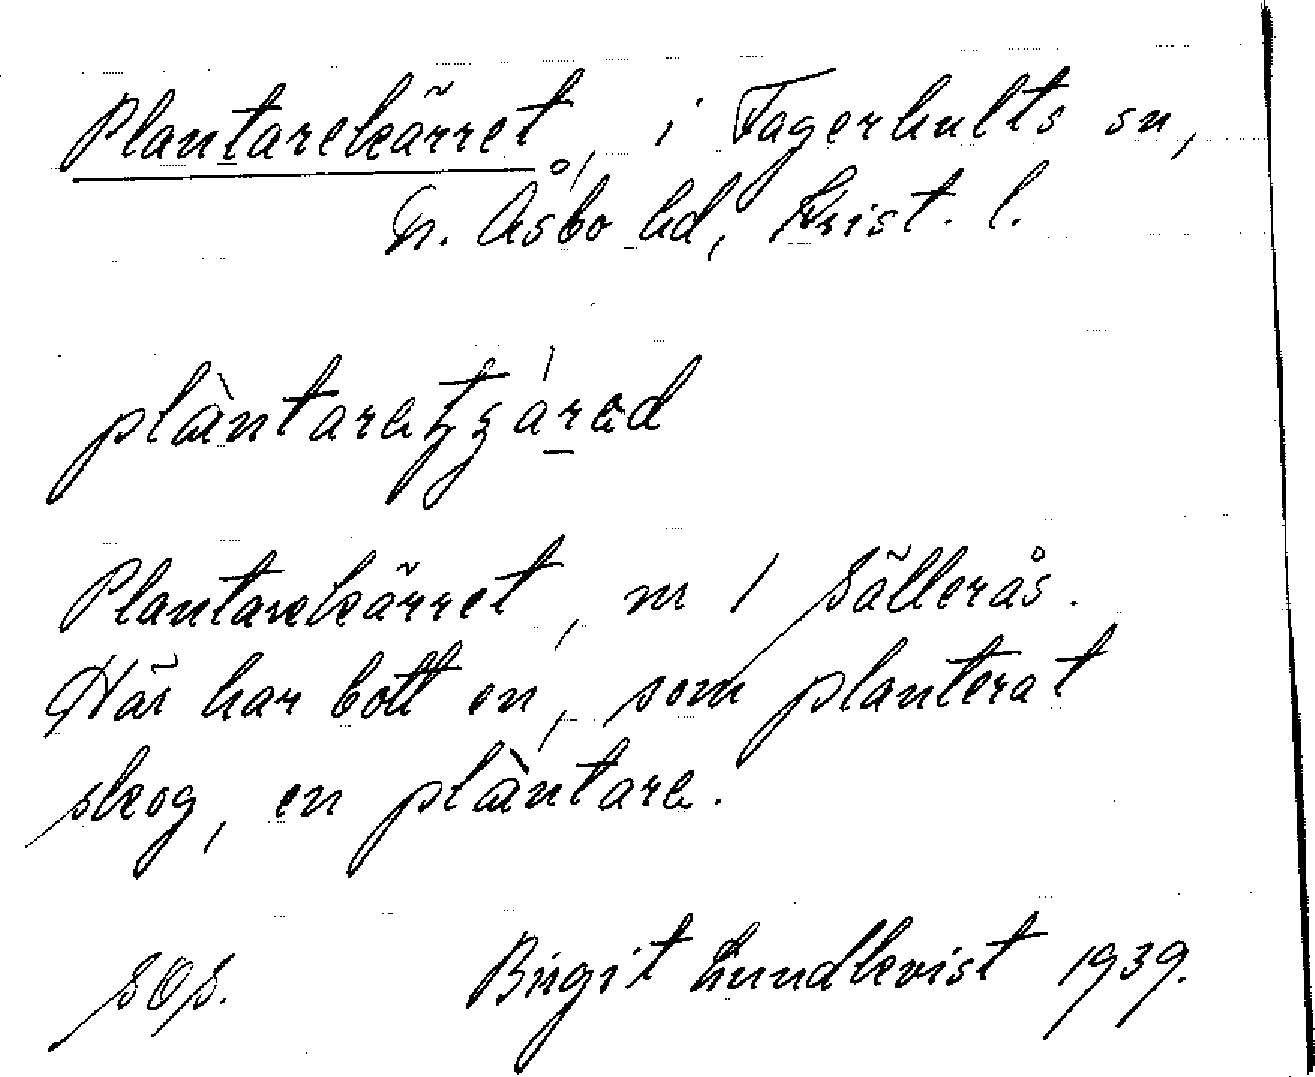 Plantarekärret, i Fagerhults sn,
N. Åsbo hd, Krist. l.
Plantarekärret, m 1 Sällerås.
Här har bott en, som planterat
skog, en plàntara.
SOS. Birgit Lundkvist 1939.